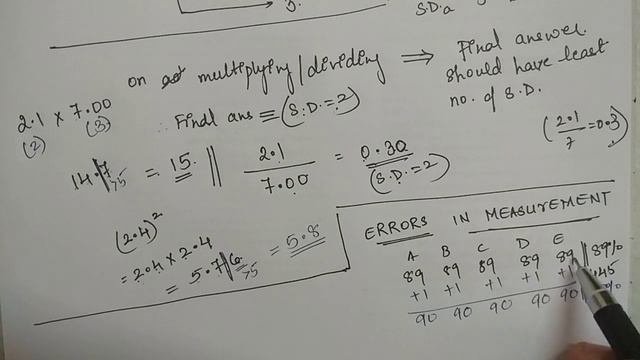 S.D.a
on multiplying/dividing ⇒ Final answer
should have least
no. of S.D.
2.1 × 7.00
(2) (3)
∴ Final ans ≡ (S.D. = 2)
(2.1/7 = 0.3)
14.7 >5 = 15. || 2.1/7.00 = 0.30
(S.D. = 2)
(2.4)²
= 2.4 × 2.4
= 5.7|6 >5 = 5.8
ERRORS IN MEASUREMENT
A B C D E
89 89 89 89 89 || 89%
+1 +1 +1 +1 +1
90 90 90 90 90